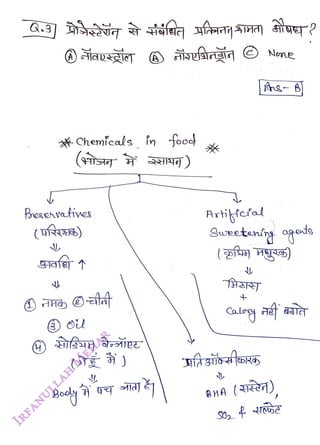 Q.3) प्रोजेस्टेरॉन से संबंधित प्रतिजनन क्षमता औषध?
Ⓐ नॉवएस्ट्रॉल Ⓑ नॉरएथिनड्रॉन Ⓒ None
Ans- B
* Chemicals in food *
(भोजन में रसायन)
Preservatives
(परिरक्षक)
⇓
अवधि ↑
⇓
① नमक ② चीनी
③ Oil
④ सोडियम बेन्जोएट
⇓
Body में पच जाता है।
Artificial
Sweetening agents
(कृत्रिम मधुरक)
⇓
मिठास
+
Calory नहीं बढ़ाते
प्रतिऑक्सीकारक
⇓
SO₂ & सल्फेट
IRFANULLAH MEHAR